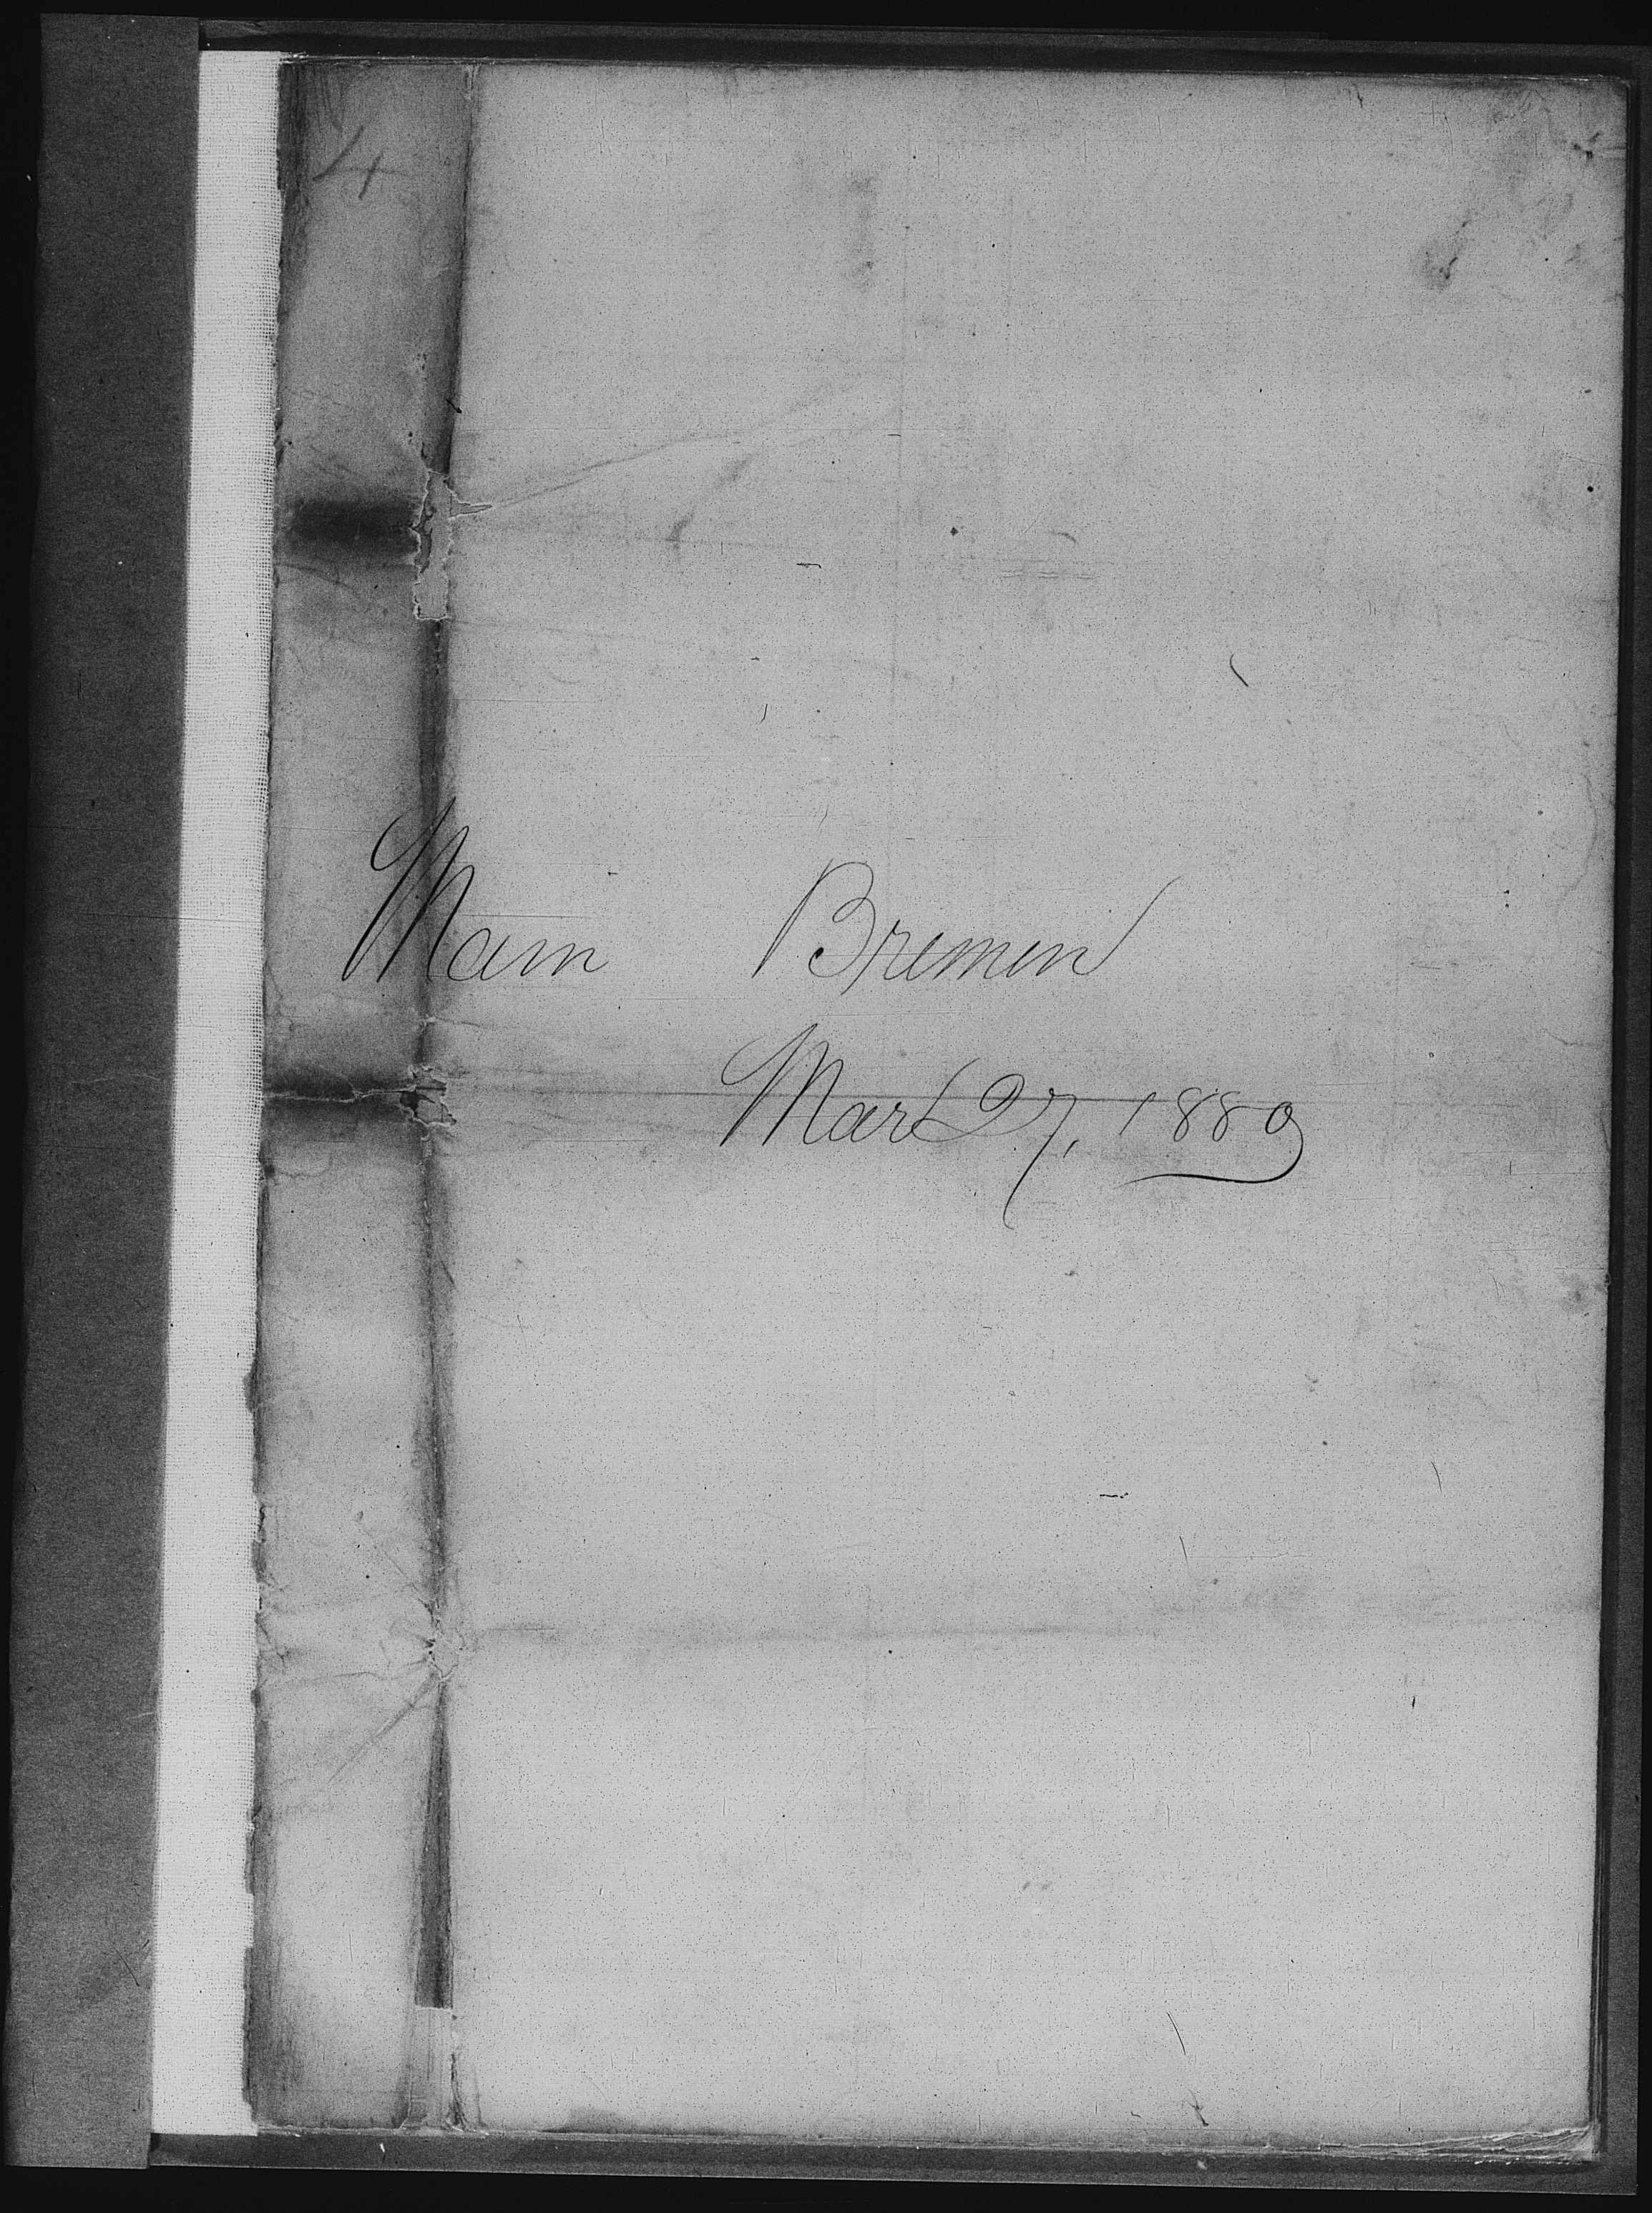 4
Main Bremen
Mar 27, 1889